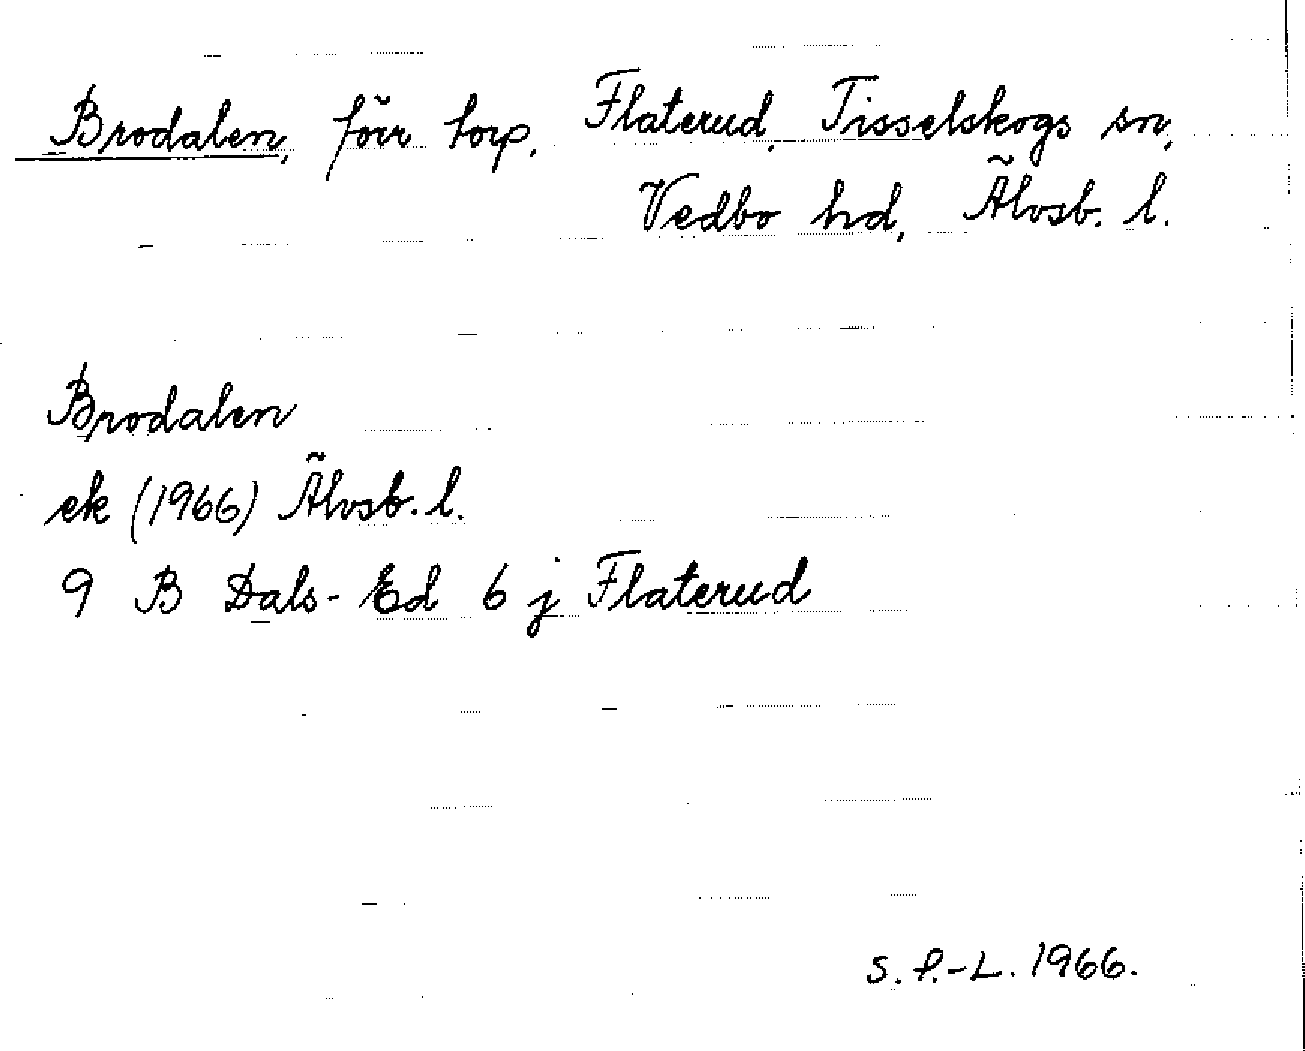 Brodalen, förr torp, Flaterud, Tisselskogs sn,
Vedbo hd, Älvsb. l.
Brodalen
ek (1966) Älvsb. l.
9 B Dals-Ed 6 j Flaterud
S. P.-L. 1966.